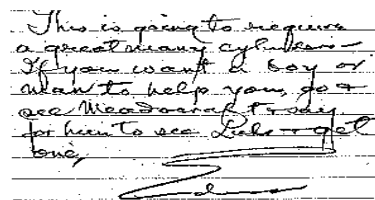 This is going to require
a great many cylinders—
If you want a boy or
man to help you, go &
see Meadowcraft & say
for him to see Luhr & get
one,
Edison